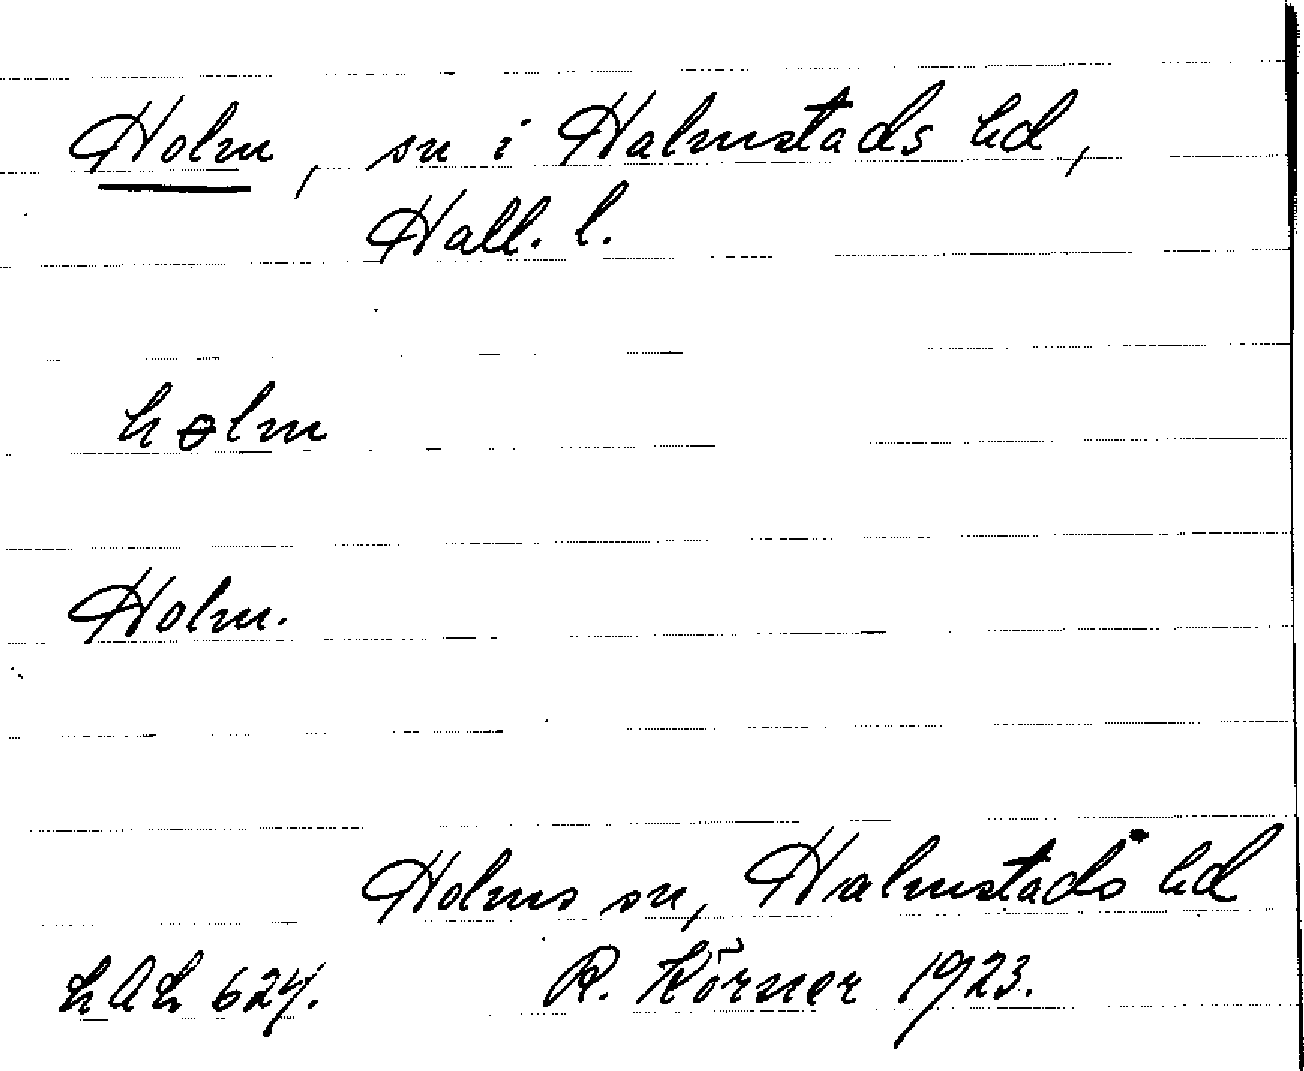 Holm, sn i Halmstads hd,
Hall. l.
hɵlm
Holm.
Holms sn, Halmstads hd
R. Körner 1923.